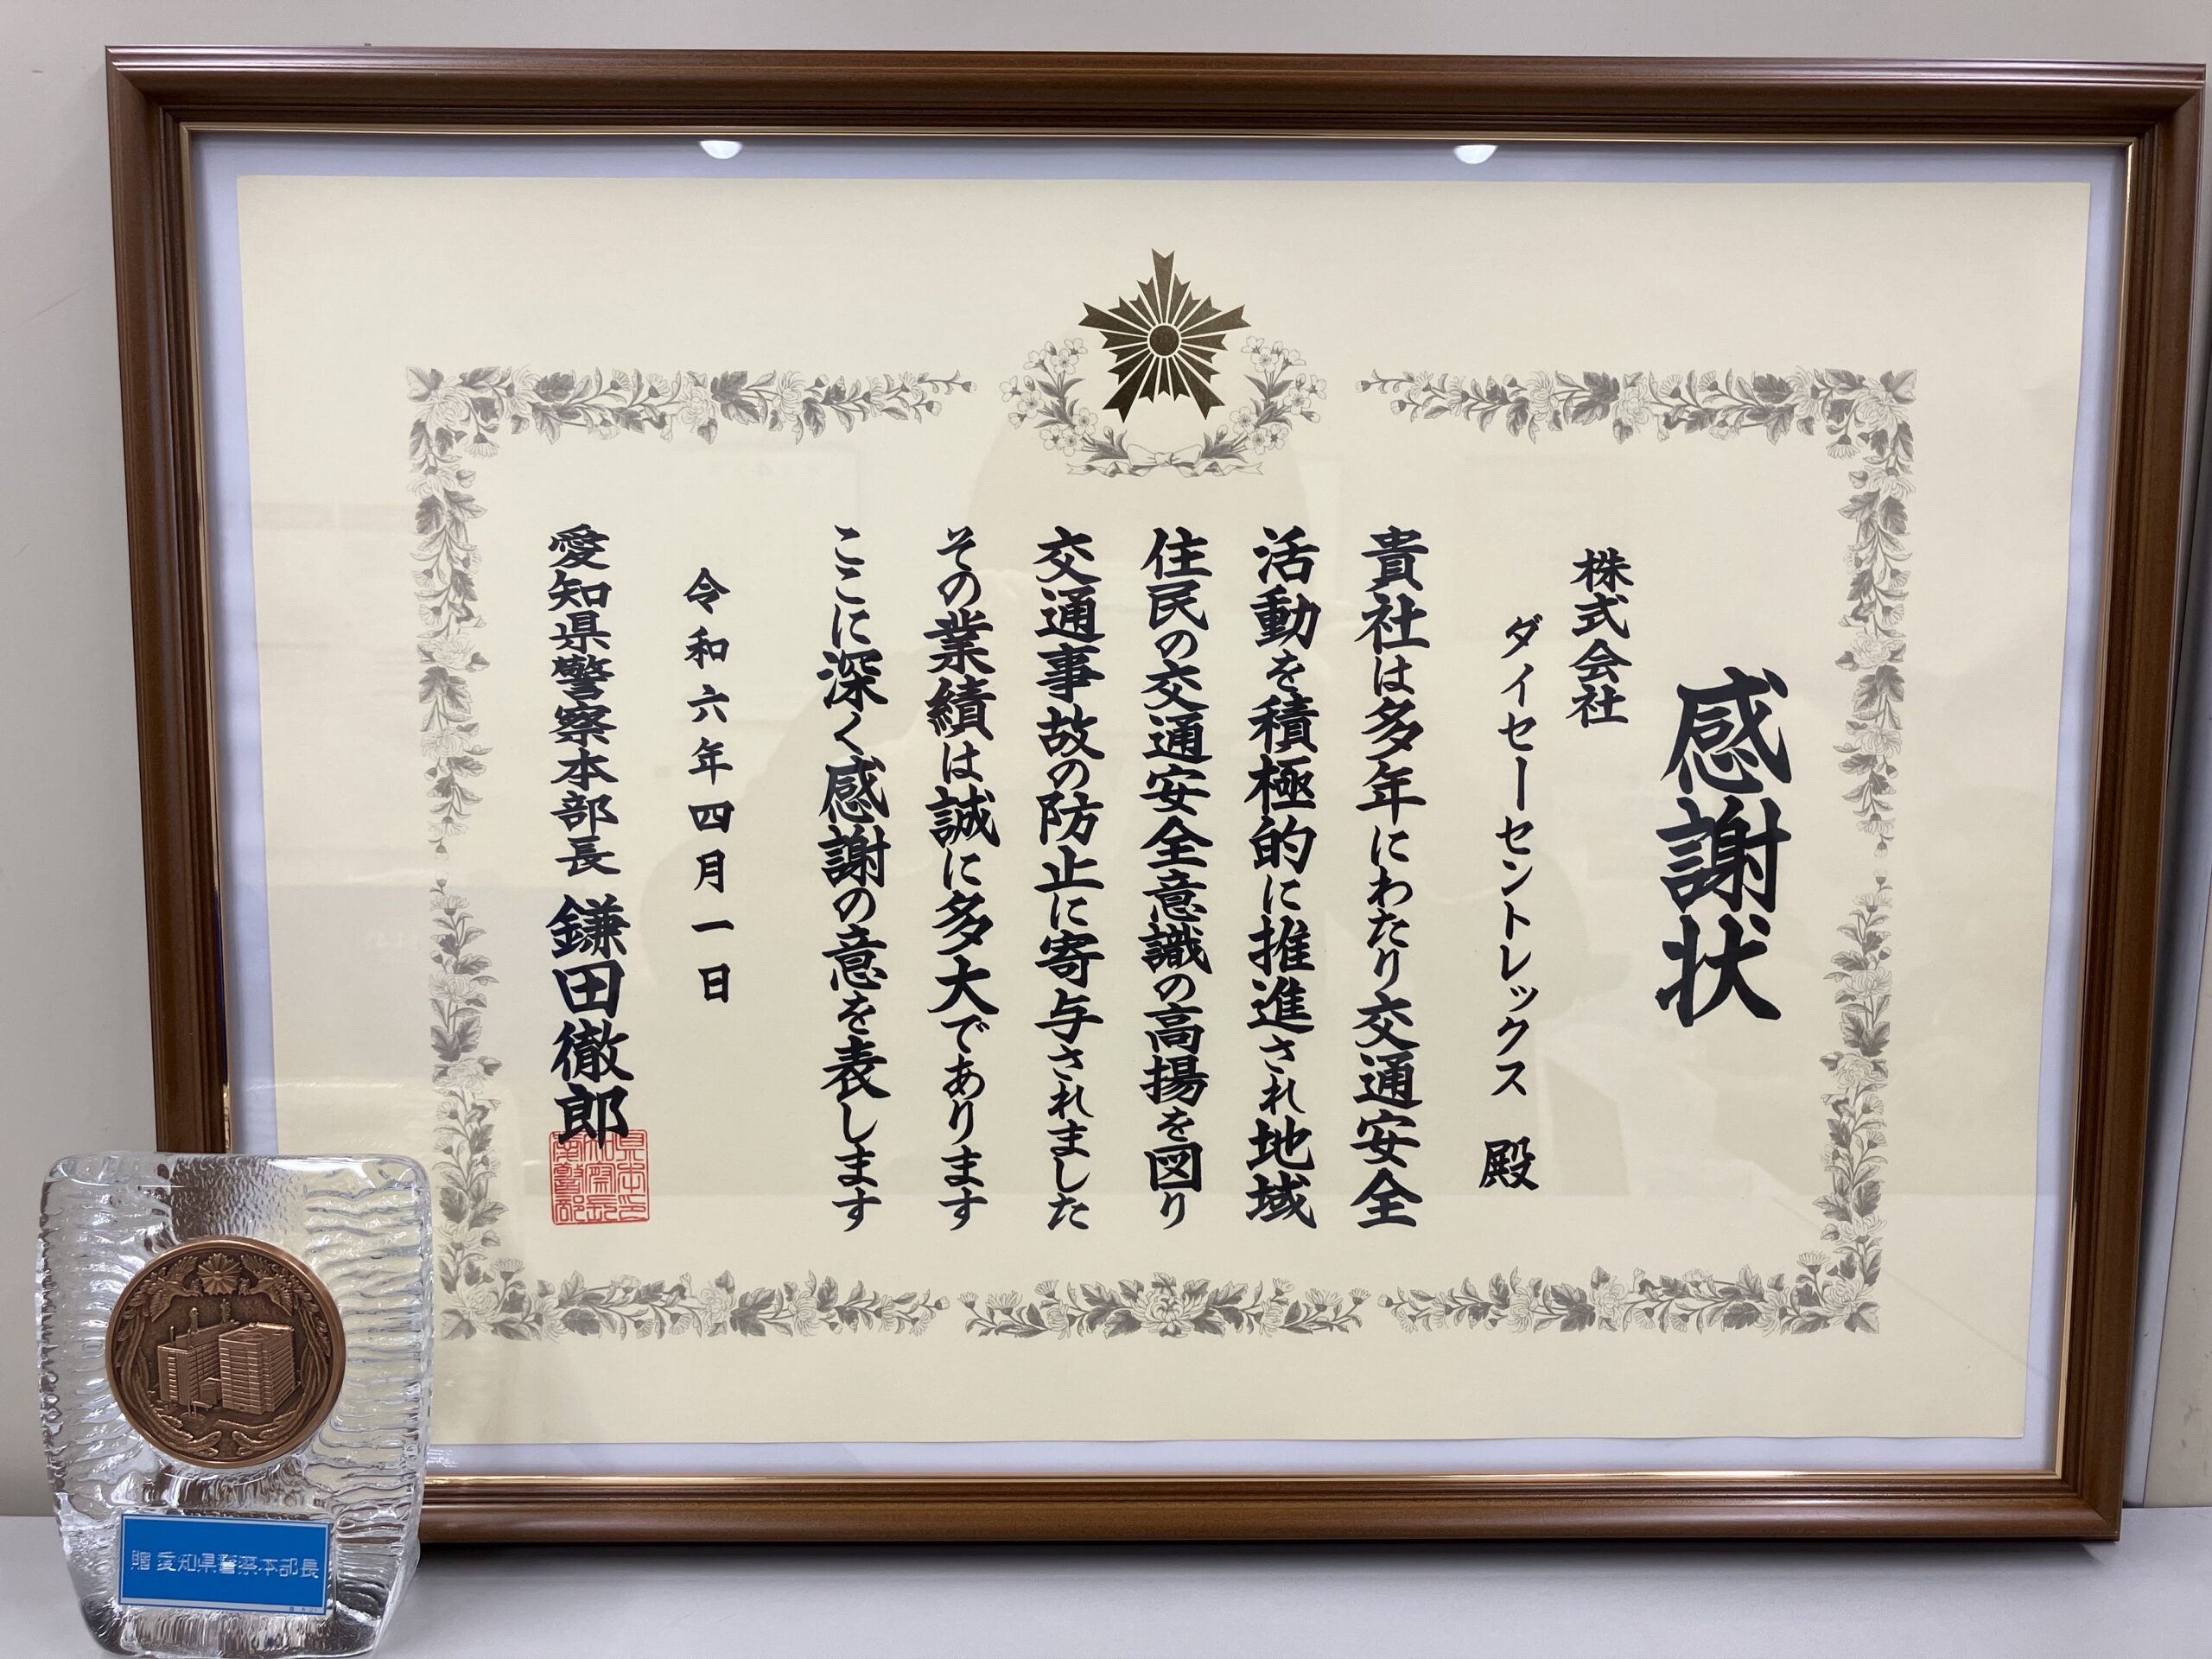 感謝状
株式会社
ダイセーセントレックス 殿
貴社は多年にわたり交通安全
活動を積極的に推進され地域
住民の交通安全意識の高揚を図り
交通事故の防止に寄与されました
その業績は誠に多大であります
ここに深く感謝の意を表します
令和六年四月一日
愛知県警察本部長 鎌田徹郎
贈 愛知県警察本部長